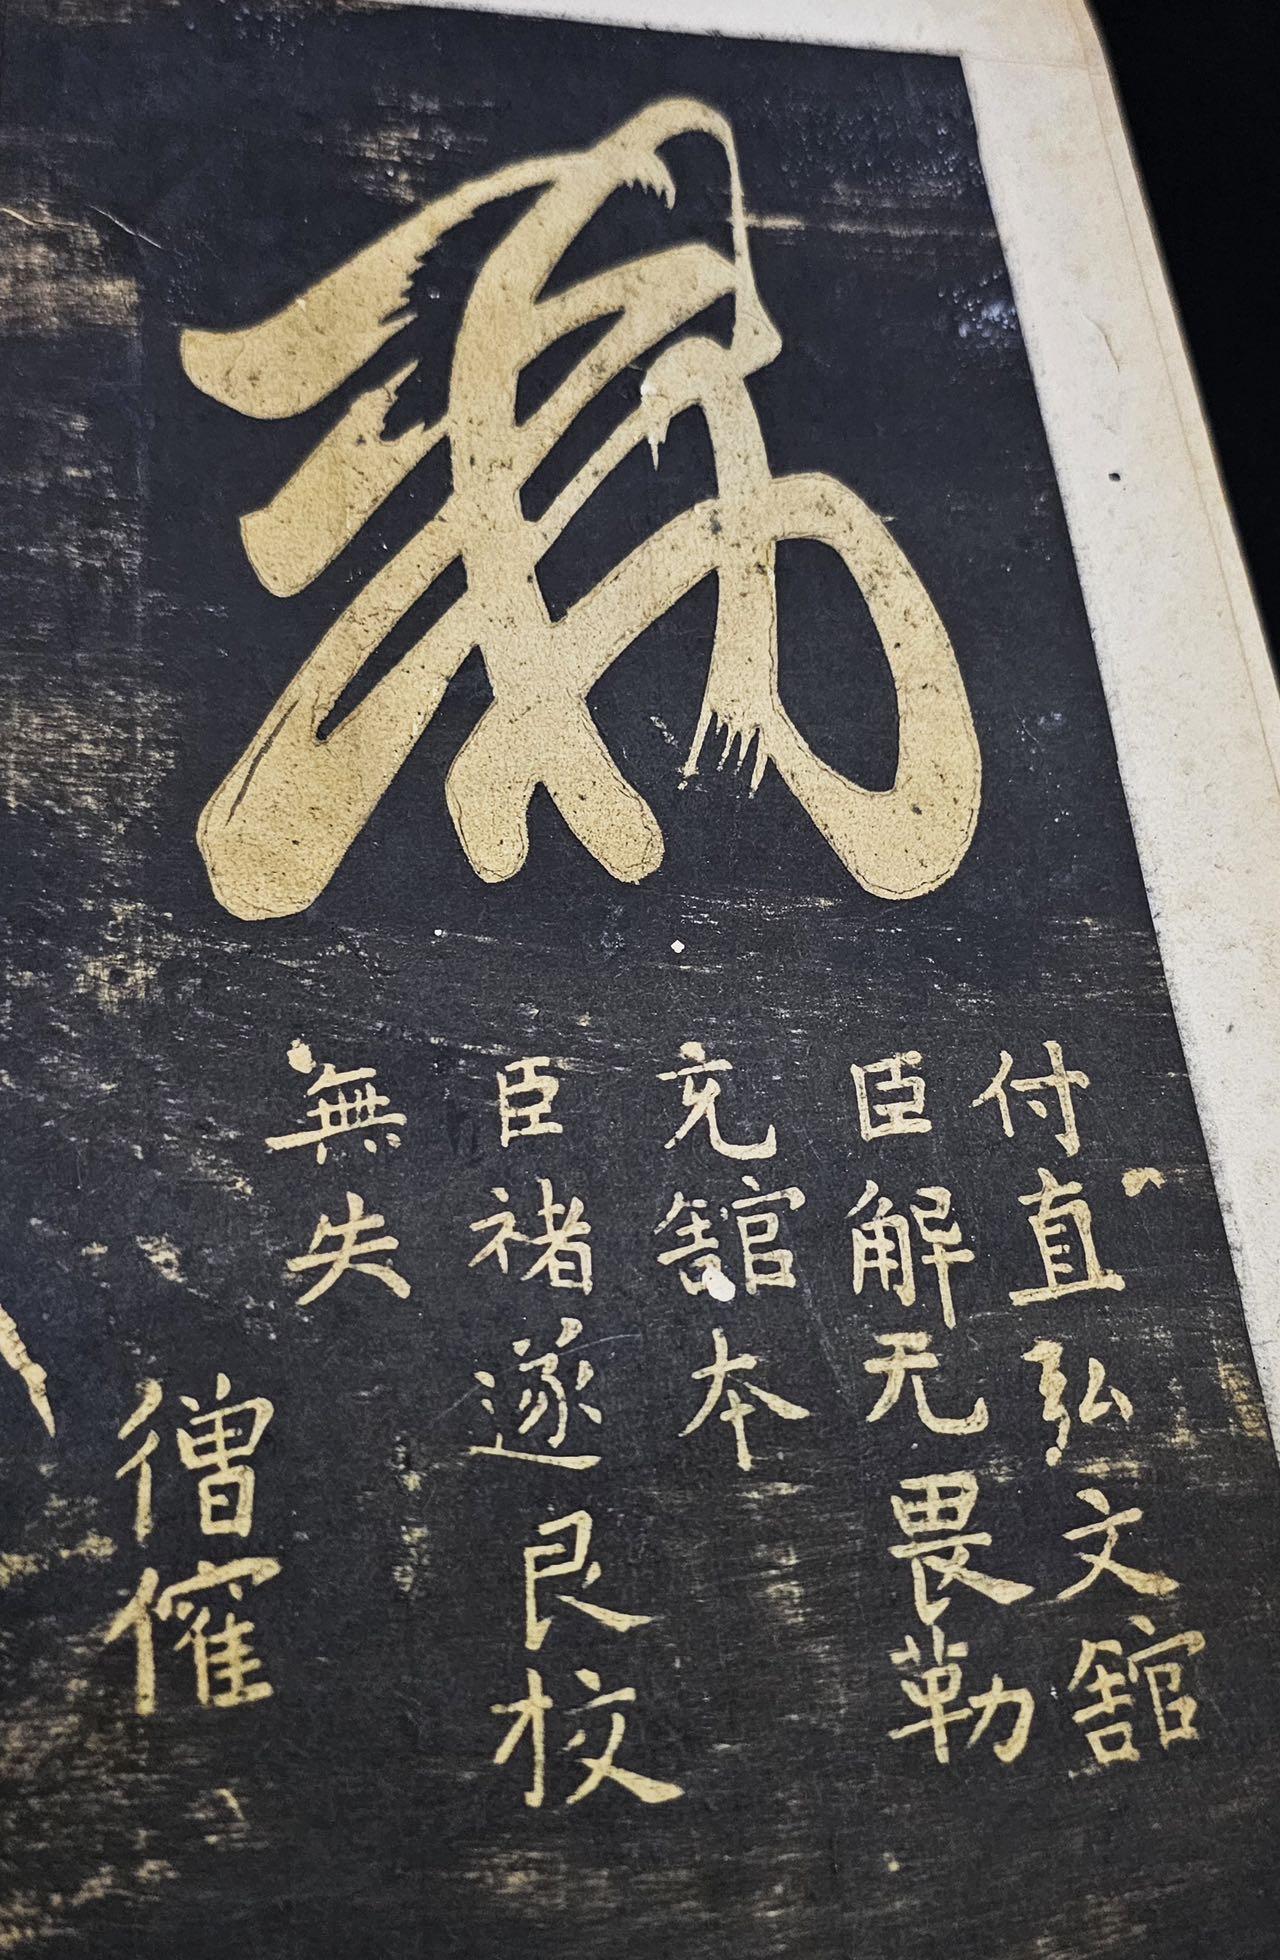 敕
付直弘文舘
臣解无畏勒
充舘本
臣褚遂良校
無失
僧傕